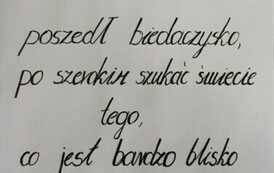 poszedł biedaczysko,
po szerokim szukać świecie
tego,
co jest bardzo blisko